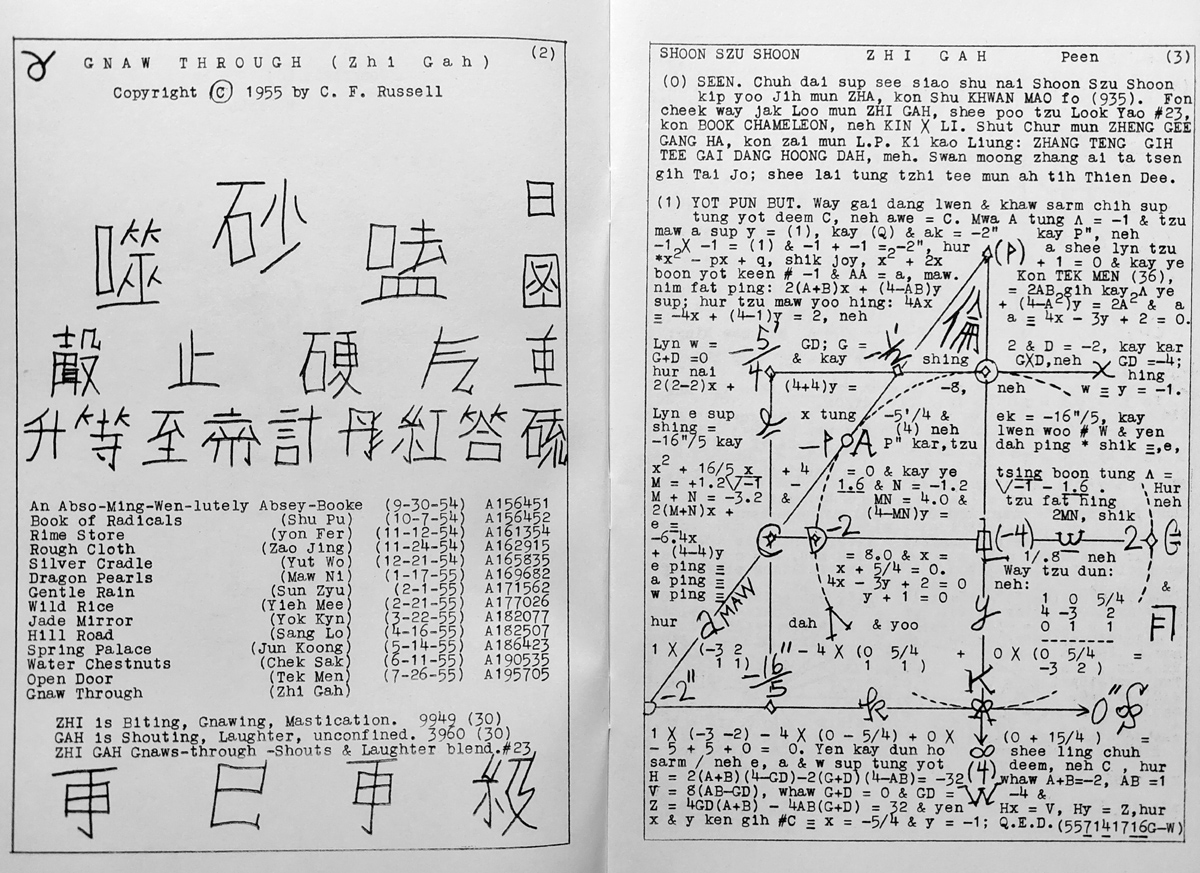 (2)
G N A W T H R O U G H ( Z h i G a h )
Copyright © 1955 by C. F. Russell
石少
日
噬
嗑
止
硬
重
升 等 至 計 彤 紅 答 硫
An Abso-Ming-Wen-lutely Absey-Booke (9-30-54) A156451
Book of Radicals (Shu Pu) (10-7-54) A156452
Rime Store (yon Fer) (11-12-54) A161354
Rough Cloth (Zao Jing) (11-24-54) A162915
Silver Cradle (Yut Wo) (12-21-54) A165835
Dragon Pearls (Maw Ni) (1-17-55) A169682
Gentle Rain (Sun Zyu) (2-1-55) A171562
Wild Rice (Yieh Mee) (2-21-55) A177026
Jade Mirror (Yok Kyn) (3-22-55) A182077
Hill Road (Sang Lo) (4-16-55) A182507
Spring Palace (Jun Koong) (5-14-55) A186423
Water Chestnuts (Chek Sak) (6-11-55) A190535
Open Door (Tek Men) (7-26-55) A195705
Gnaw Through (Zhi Gah)
ZHI is Biting, Gnawing, Mastication. 9949 (30)
GAH is Shouting, Laughter, unconfined. 3960 (30)
ZHI GAH Gnaws-through -Shouts & Laughter blend.#23
再 巳 再 級
SHOON SZU SHOON Z H I G A H Peen (3)
(0) SEEN. Chuh dai sup see siao shu nai Shoon Szu Shoon
kip yoo Jih mun ZHA, kon Shu KHWAN MAO fo (935). Fon
cheek way jak Loo mun ZHI GAH, shee poo tzu Look Yao #23,
kon BOOK CHAMELEON, neh KIN X LI. Shut Chur mun ZHENG GEE
GANG HA, kon zai mun L.P. Ki kao Liung: ZHANG TENG GIH
TEE GAI DANG HOONG DAH, meh. Swan moong zhang ai ta tsen
gih Tai Jo; shee lai tung tzhi tee mun ah tih Thien Dee.
(1) YOT PUN BUT. Way gai dang lwen & khaw sarm chih sup
tung yot deem C, neh awe = C. Mwa A tung Λ = -1 & tzu
maw a sup y = (1), kay (Q) & ak = -2" kay P", neh
-1 X -1 = (1) & -1 + -1 = -2", hur (P) a shee lyn tzu
*x² - px + q, shik joy, x² + 2x + 1 = 0 & kay ye
boon yot keen # -1 & AA = a, maw. Kon TEK MEN (36),
nim fat ping: 2(A+B)x + (4-AB)y = 2AB gih kay Λ ye
sup; hur tzu maw yoo hing: 4Ax + (4-A²)y = 2A² & a
≡ -4x + (4-1)y = 2, neh a ≡ 4x - 3y + 2 = 0.
倫
Lyn w = -5'/4 GD; G = -½ shing 2 & D = -2, kay kar
G+D =0 & kay GXD,neh GD =-4;
hur nai hing
2(2-2)x + (4+4)y = -8, neh w ≡ y = -1.
Lyn e sup x tung -5'/4 & ek = -16"/5, kay
shing = (4) neh lwen woo # W & yen
-16"/5 kay -P A P" kar,tzu dah ping * shik ≡,e,
x² + 16/5 x + 4 = 0 & kay ye tsing boon tung Λ =
M = +1.2√-1 - 1.6 & N = -1.2 √-1 - 1.6 . Hur
M + N = -3.2 & MN = 4.0 & tzu fat hing neh
2(M+N)x + (4-MN)y = 2MN, shik
e ≡ -2 (-4) w 2 G
-6.4x = 8.0 & x = 1/.8 neh
+ (4-4)y x + 5/4 = 0. Way tzu dun:
e ping ≡ 4x - 3y + 2 = 0 neh:
a ping ≡ y + 1 = 0 1 0 5/4 &
w ping ≡ 4 -3 2
hur a MAW dah & yoo y 0 1 1
1 X (-3 2 - 4 X (0 5/4 + 0 X (0 5/4 =
1 1) 1 1 ) -3 2 )
-2" -16"/5 K 0"
1 X (-3 -2) - 4 X (0 - 5/4) + 0 X (0 + 15/4 ) =
- 5 + 5 + 0 = 0. Yen kay dun ho ∞ shee ling chuh
sarm / neh e, a & w sup tung yot deem, neh C , hur
H = 2(A+B)(4-GD)-2(G+D)(4-AB)= -32 (4) whaw A+B=-2, AB =1
V = 8(AB-GD), whaw G+D = 0 & GD = -4 &
Z = 4GD(A+B) - 4AB(G+D) = 32 & yen W Hx = V, Hy = Z,hur
x & y ken gih #C ≡ x = -5/4 & y = -1; Q.E.D.(557141716G-W)